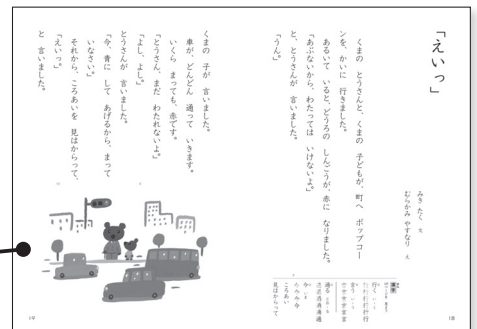 「えいっ」
みき たく 文
むらかみ やすなり え
くまの とうさんと、くまの 子どもが、町へ ポップコー
ンを、かいに 行きました。
あるいて いると、どうろの しんごうが、赤に なりました。
「あぶないから、わたっては いけないよ。」
と、とうさんが 言いました。
「うん。」
行く
言う
通る
今
ころあい
見はからって
18
くまの 子が 言いました。
車が、どんどん 通って いきます。
いくら まっても、赤です。
「とうさん、まだ わたれないよ。」
「よし、よし。」
とうさんが 言いました。
「今、青に して あげるから、まって
いなさい。」
それから、ころあいを 見はからって、
「えいっ。」
と 言いました。
19